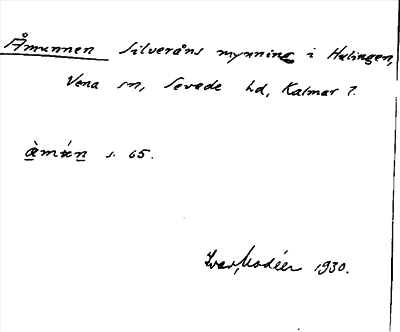 Åmunnen Silveråns mynning i Hulingen,
Vena sn, Sevede hd, Kalmar l.
àmún s. 65.
Ivar Modéer 1930.